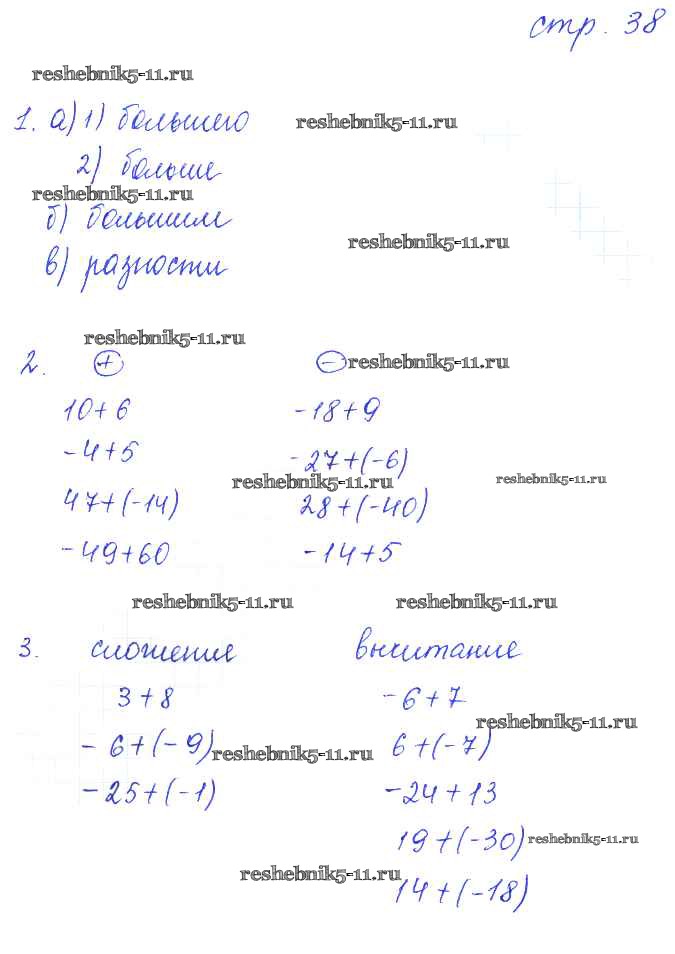 стр. 38
reshebnik5-11.ru
1. а) 1) большего reshebnik5-11.ru
2) больше
reshebnik5-11.ru
б) большим
reshebnik5-11.ru
в) разности
reshebnik5-11.ru
2. + - reshebnik5-11.ru
10+6 -18+9
-4+5 -27+(-6)
reshebnik5-11.ru reshebnik5-11.ru
47+(-14) 28+(-40)
-49+60 -14+5
reshebnik5-11.ru reshebnik5-11.ru
3. сложение вычитание
3+8 -6+7
reshebnik5-11.ru
-6+(-9) reshebnik5-11.ru 6+(-7)
-25+(-1) -24+13
19+(-30) reshebnik5-11.ru
reshebnik5-11.ru 14+(-18)